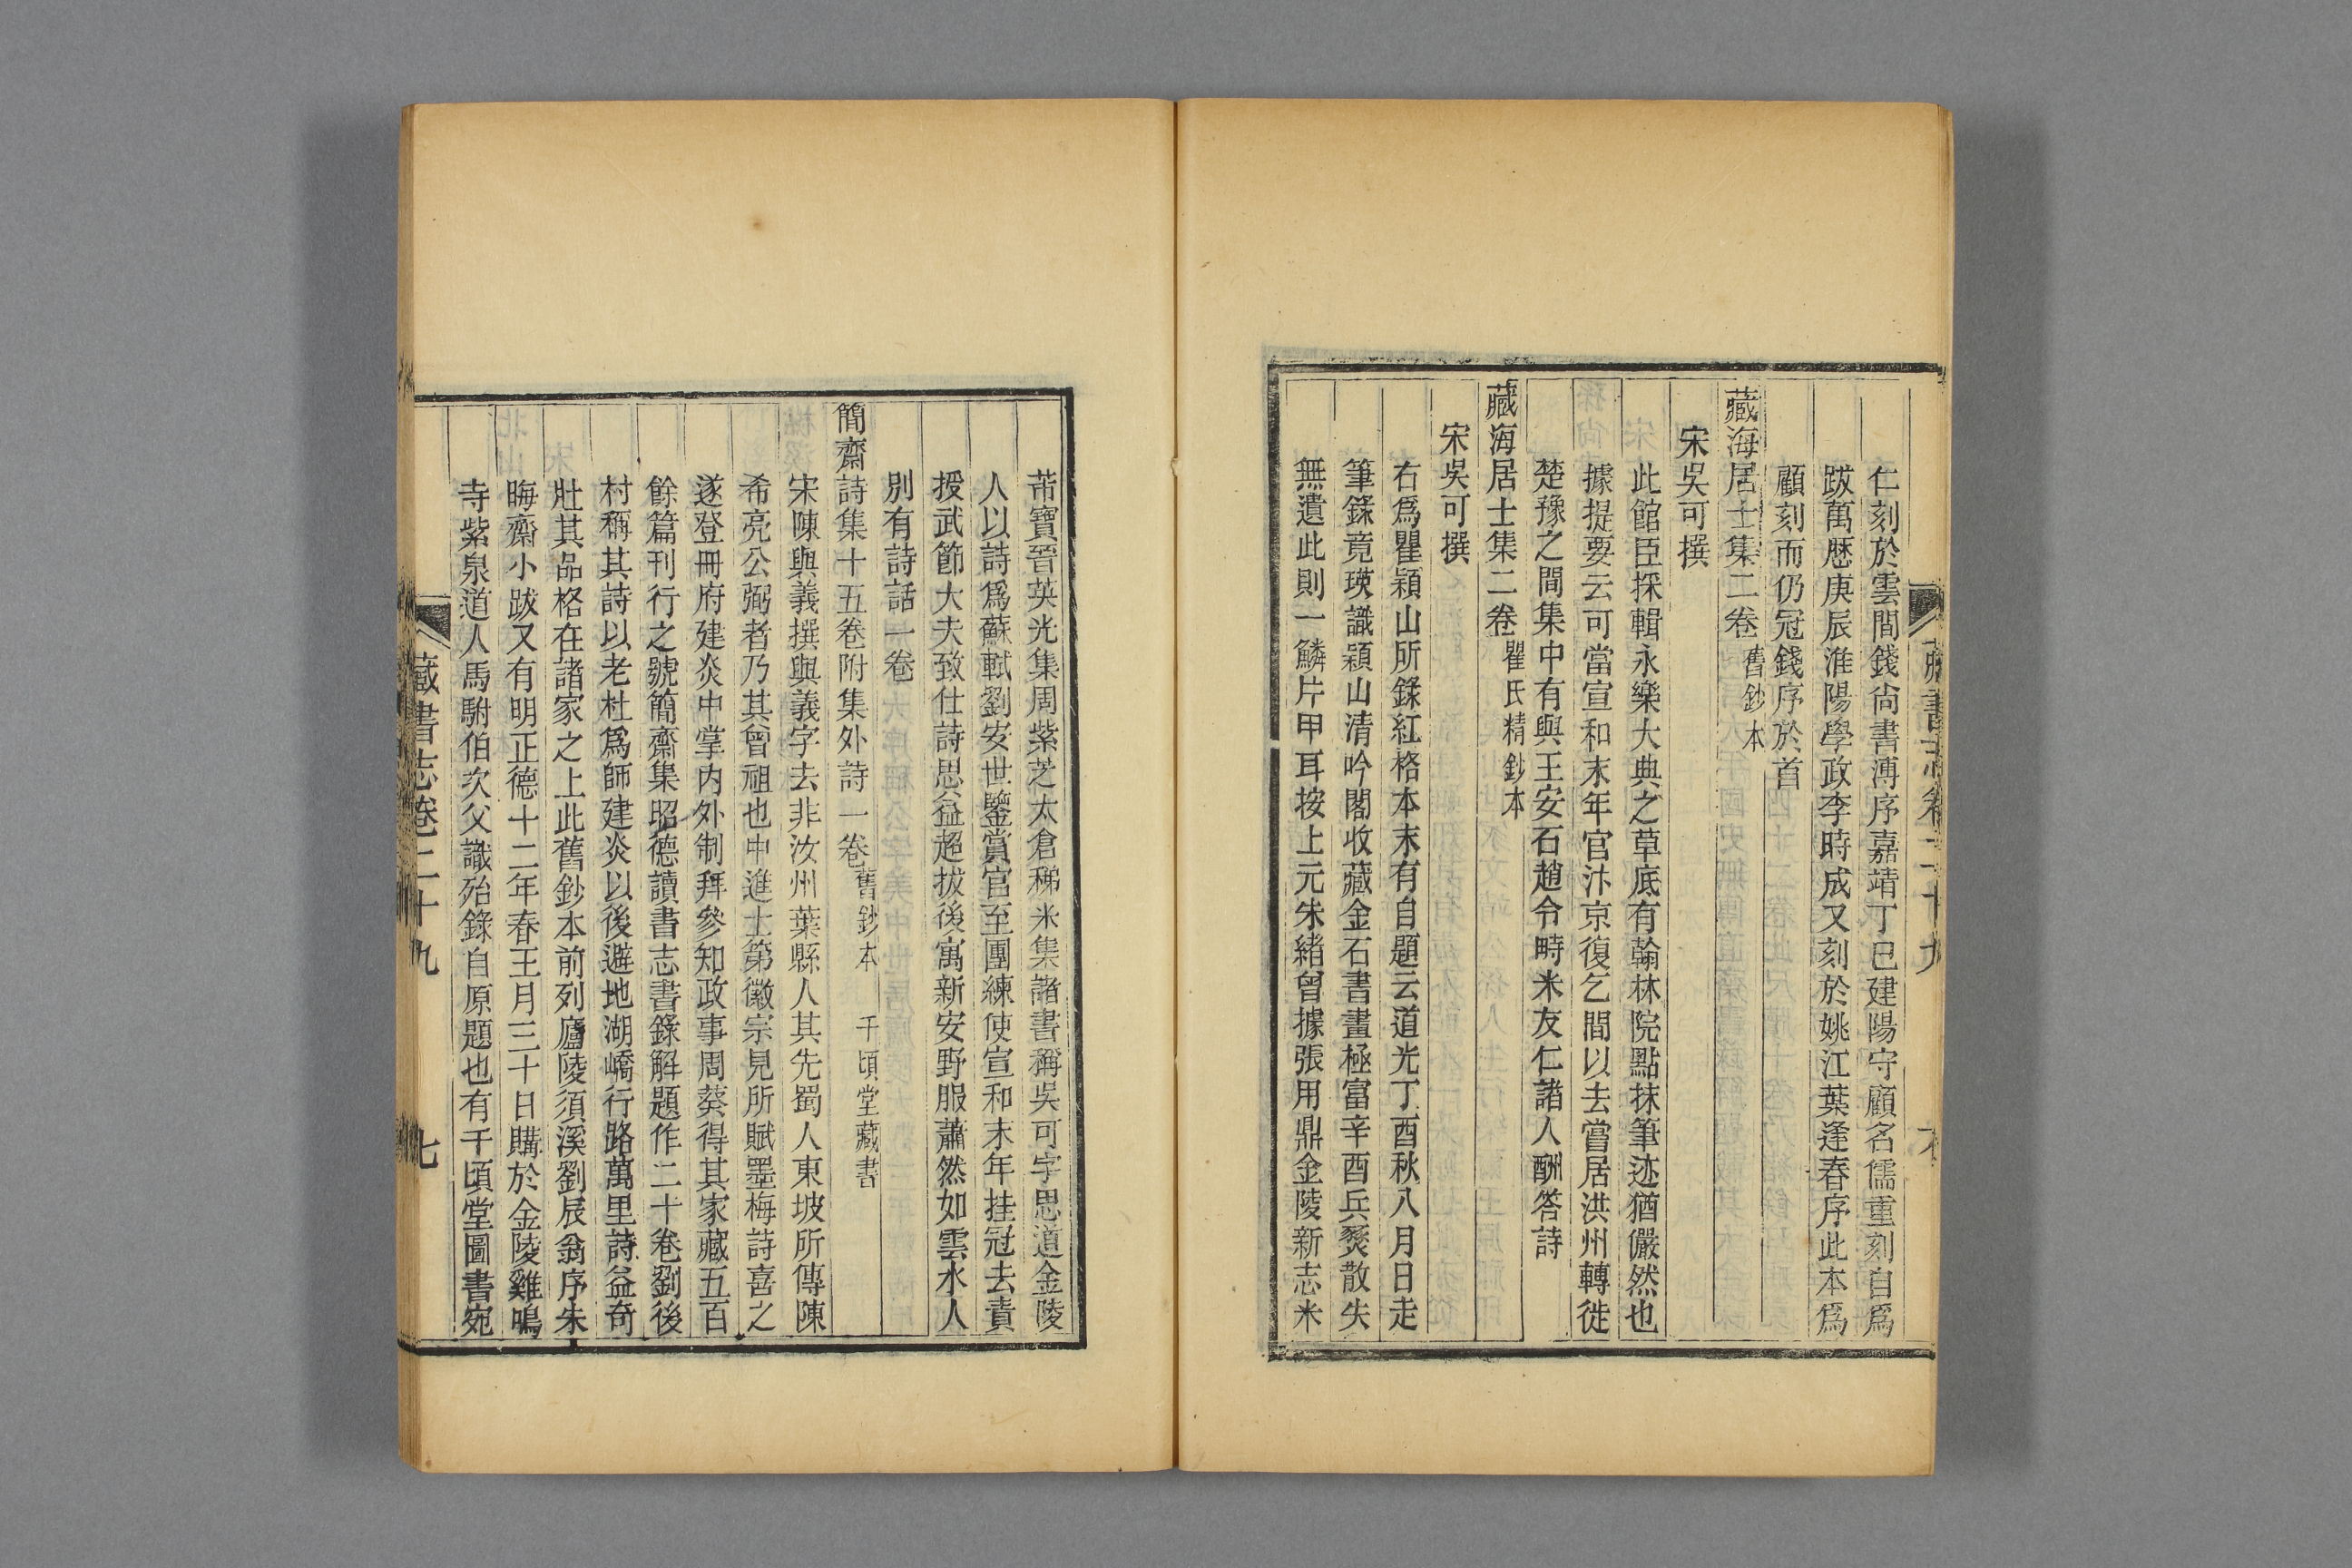 仁刻於雲間錢尙書溥序嘉靖丁巳建陽守顧名儒重刻自爲
跋萬厯庚辰淮陽學政李時成又刻於姚江葉逢春序此本爲
顧刻而仍冠錢序於首
藏海居士集二卷 舊鈔本
宋吳可撰
此館臣採輯永樂大典之草底有翰林院點抹筆迹猶儼然也
據提要云可當宣和末年官汴京復乞閒以去嘗居洪州轉徙
楚豫之間集中有與王安石趙令畤米友仁諸人酬答詩
藏海居士集二卷 瞿氏精鈔本
宋吳可撰
右爲瞿穎山所錄紅格本末有自題云道光丁酉秋八月日走
筆錄竟瑛識穎山清吟閣收藏金石書畫極富辛酉兵燹散失
無遺此則一鱗片甲耳按上元朱緒曾據張用鼎金陵新志米
芾寶晉英光集周紫芝太倉稊米集諸書稱吳可字思道金陵
人以詩爲蘇軾劉安世鑒賞官至團練使宣和末年挂冠去責
授武節大夫致仕詩思益超拔後寓新安野服蕭然如雲水人
別有詩話一卷
簡齋詩集十五卷附集外詩一卷 舊鈔本 千頃堂藏書
宋陳與義撰與義字去非汝州葉縣人其先蜀人東坡所傳陳
希亮公弼者乃其曾祖也中進士第徽宗見所賦墨梅詩喜之
遂登冊府建炎中掌內外制拜參知政事周葵得其家藏五百
餘篇刊行之號簡齋集昭德讀書志書錄解題作二十卷劉後
村稱其詩以老杜爲師建炎以後避地湖嶠行路萬里詩益奇
壯其品格在諸家之上此舊鈔本前列廬陵須溪劉辰翁序朱
晦齋小跋又有明正德十二年春王月三十日購於金陵雞鳴
寺紫泉道人馬駙伯次父識殆錄自原題也有千頃堂圖書宛
藏書志卷二十九 七